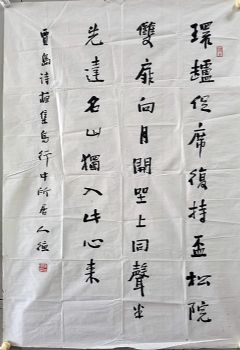 環爐促席復持盃松院
雙扉向月開坐上同聲半
先達名山獨入此心來
賈島詩夜集烏行中所居